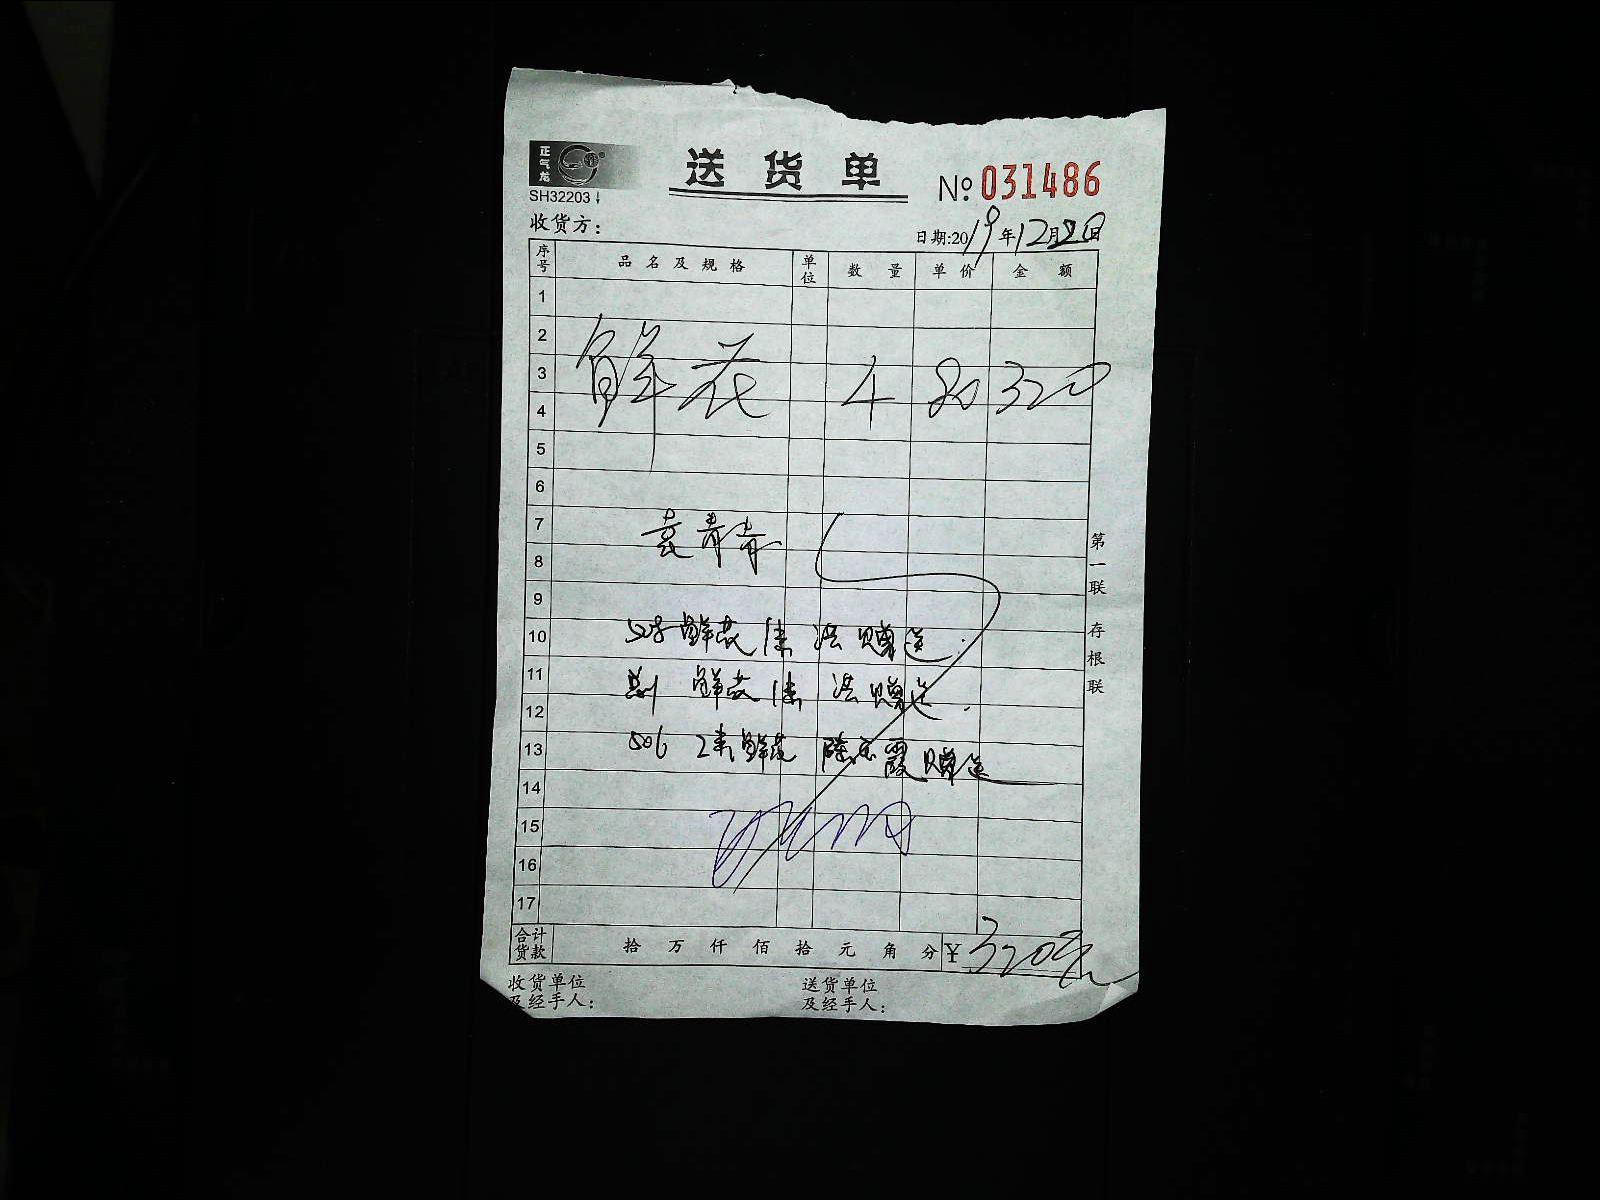 正气龙
送货单
№ 031486
SH32203
收货方：
日期:2019年12月20日
序号 品名及规格 单位 数量 单价 金额
1
2
3 鲜花 4 80 320
4
5
6
7 袁青青
8
9
10 508 鲜花1束 洪赠送.
11 鲜花1束 洪赠送.
12
13 506 2束鲜花 陈 霞赠送
14
15
16
17
合计货款 拾 万 仟 佰 拾 元 角 分 ¥320
收货单位及经手人： 送货单位及经手人：
第一联 存根联